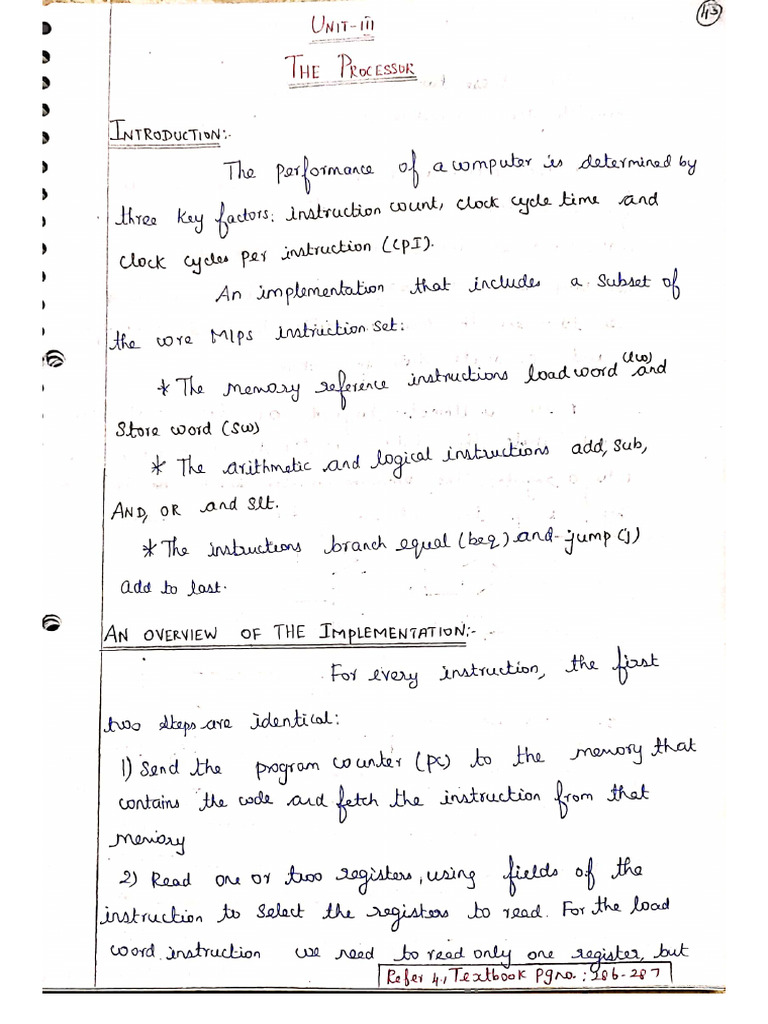 43
UNIT-III
THE PROCESSOR
INTRODUCTION:-
The performance of a computer is determined by
three key factors: instruction count, clock cycle time and
clock cycles per instruction (CPI).
An implementation that includes a subset of
the core MIPS instruction set:
* The memory reference instructions load word (lw) and
Store word (SW)
* The arithmetic and logical instructions add, sub,
AND, OR and slt.
* The instructions branch equal (beq) and jump (j)
add to last.
AN OVERVIEW OF THE IMPLEMENTATION:-
For every instruction, the first
two steps are identical:
1) Send the program counter (pc) to the memory that
contains the code and fetch the instruction from that
memory
2) Read one or two registers, using fields of the
instruction to select the registers to read. For the load
word instruction we need to read only one register, but
Refer 4., Textbook Pgno.: 286-287